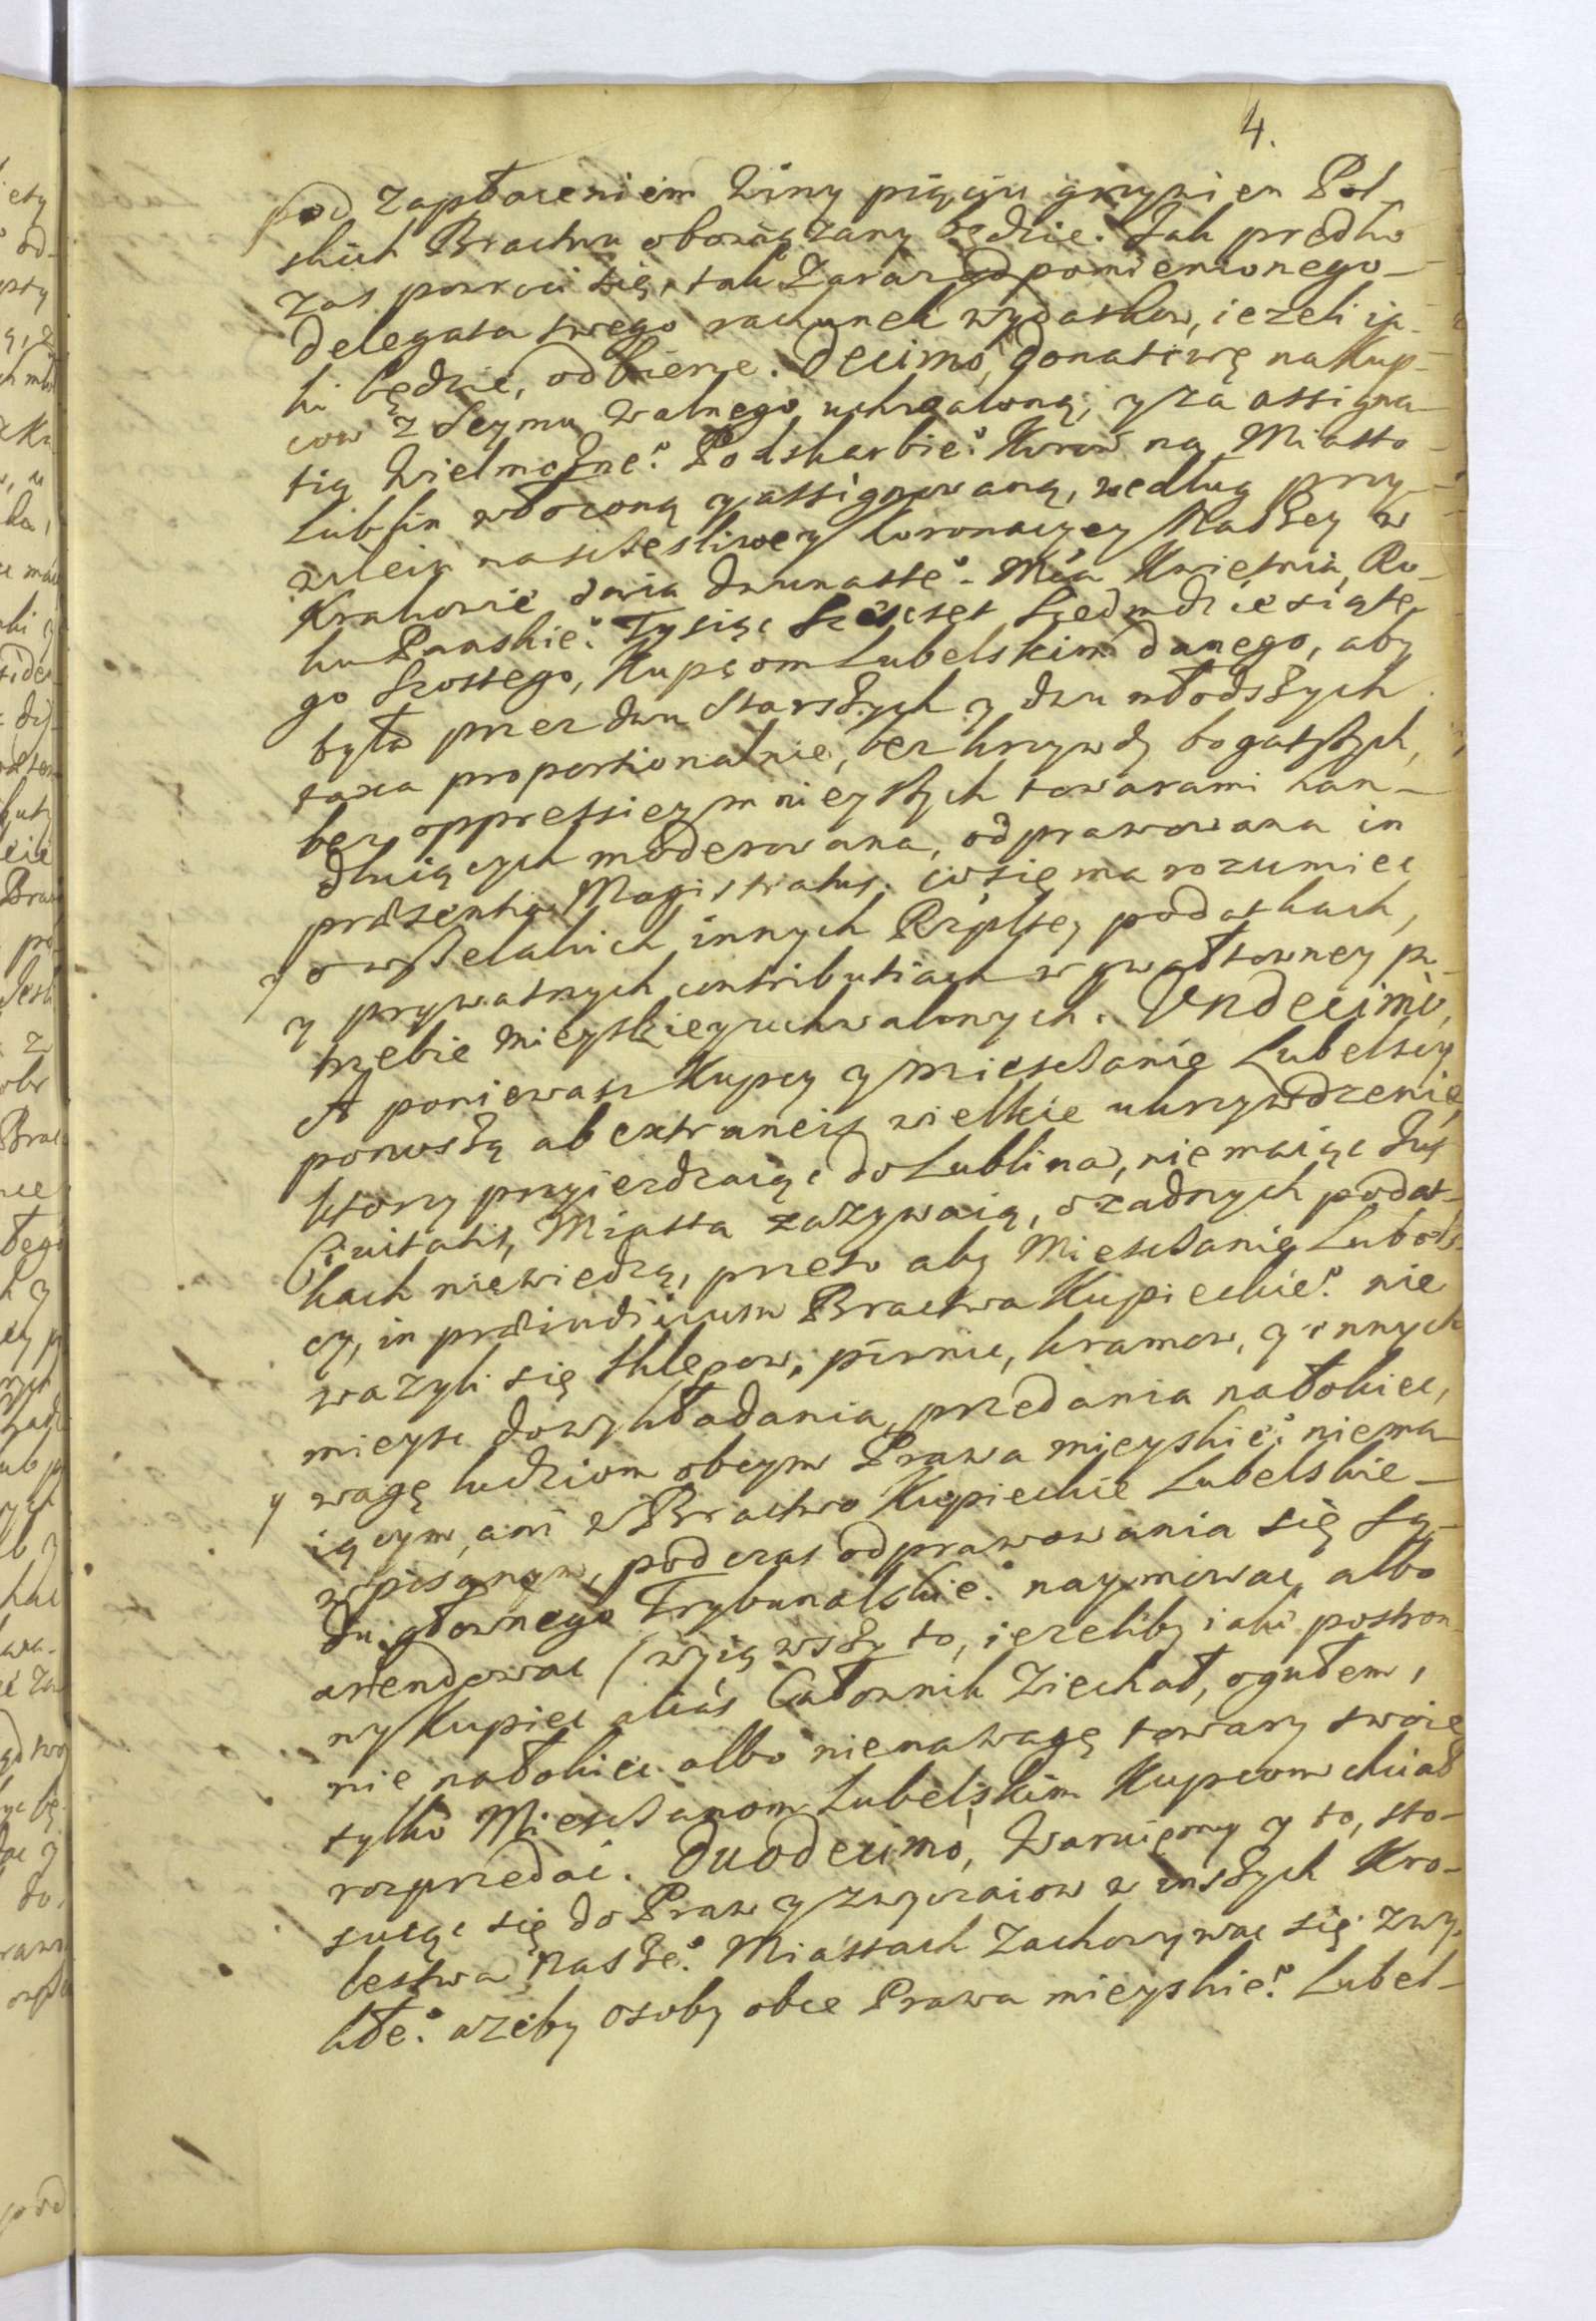 4.
pod zapłaceniem winy pięciu grzywien Pol-
skich Bractwu obowiązany będzie. Jak prędko
zas powroci się, tak zaraz od pomienionego
delegata swego rachunek wydatkow, iezeli ia-
ki będzie, odbierze. Decimò, donatiwę na Kup-
cow z Seymu walnego uchwaloną, y za assigna-
tią Wielmożne° Podskarbie° Koron na Miasto
Lublin włozoną y assignowaną, według przy-
wileiu naszczęsliwey Koronacyey Naszey w
Krakowie dnia dwunaste° Mca Kwietnia, Ro-
ku Panskie° Tysiąc Szescset Siedmdziesiąte-
go Szostego, Kupcom Lubelskim danego, aby
była przez dwu Starszych y dwu młodszych
taxa proportionalnie, bez krzywdy bogatszych,
bez oppressiey mnieyszych towarami han-
dluiących moderowana, odprawowana in
præsentia Magistratus. co się ma rozumiec
y o wszelakich innych Rzpltey podatkach,
y prywatnych contributiach w gwałtowney po-
trzebie mieyskiey uchwalonych. Undecimò,
A poniewasz Kupcy y mieszczanie Lubelscy
ponoszą ab extraneis wielkie ukrzywdzenie,
ktorzy przyiezdzaiąc do Lublina, nie maiąc Jus
Civitatis, Miasta zazywaią, o zadnych podat-
kach niewiedzą, przeto aby Mieszczanie Lubels-
cy, in præiudicium Bractwa Kupieckie° nie
wazyli się sklepow, piwnic, kramow, y innych
mieysc do wykładania, przedania na łokiec,
y wagę ludziom obcym Prawa mieyskie° niema-
iącym, ani w Bractwo Kupieckie Lubelskie
wpisanym, podczas odprawowania się Są-
du głownego Trybunalskie° naymowac, albo
arendowac (wyiąwszy to, iezeliby iaki postron-
ny Kupiec alias Całownik ziechał, ogułem,
nie na łokiec albo nie na wagę towary swoie
tylko Mieszczanom Lubelskim Kupcom chciał
rozprzedac. Duodecimò, Waruiemy y to, sto-
suiąc się do Praw y zwyczaiow w inszych Kro-
lestwa Nasze° Miastach zachowywac się zwy-
kłe° azeby osoby obce Prawa mieyskie° Lubel-